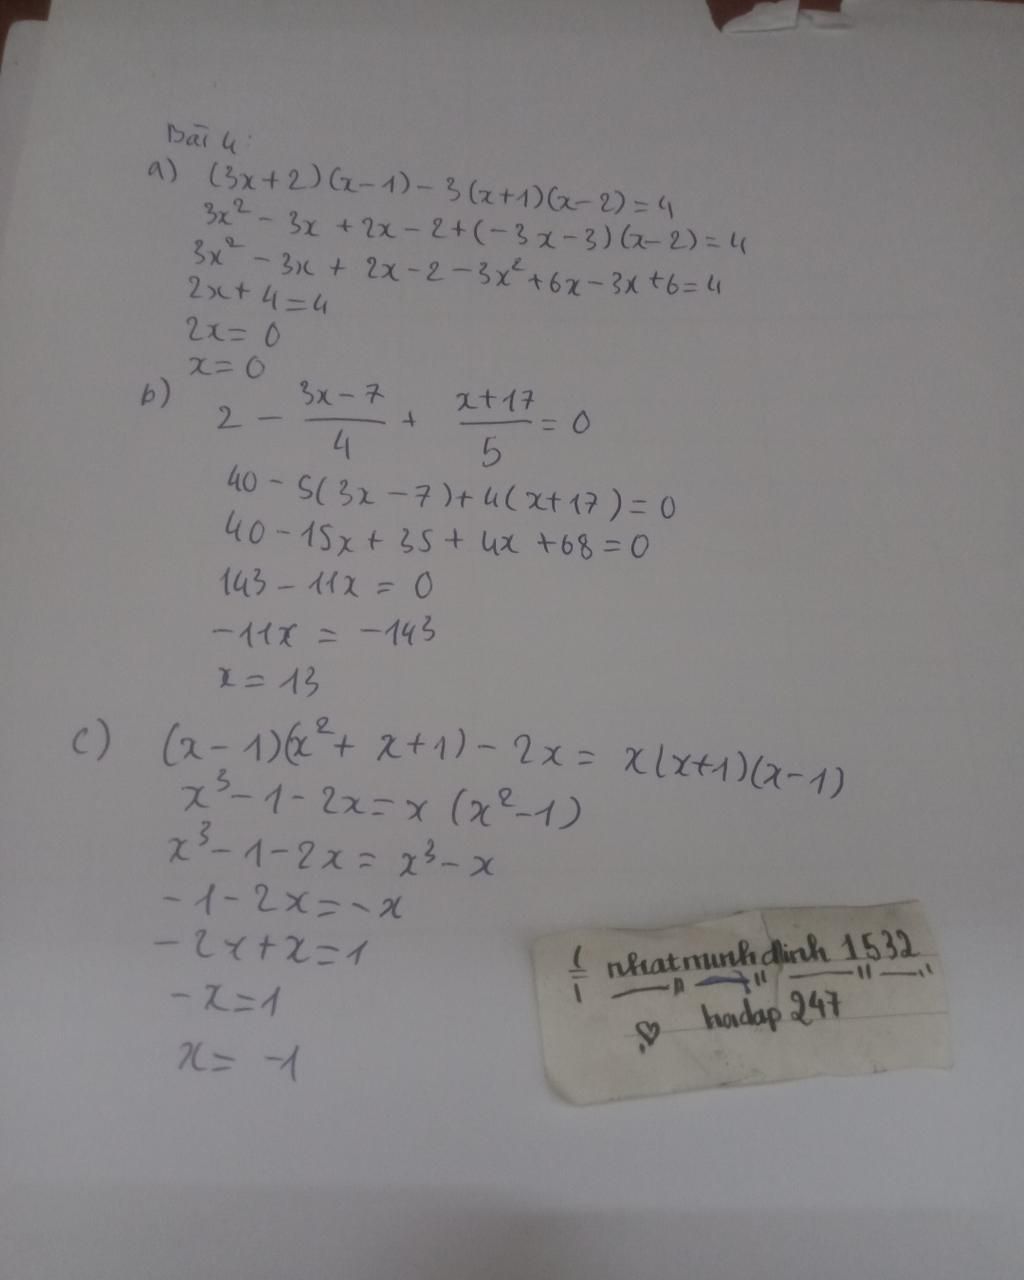 Bài 4:
a) (3x+2)(x-1)-3(x+1)(x-2)=4
3x² - 3x + 2x - 2 + (-3x-3)(x-2)=4
3x² - 3x + 2x - 2 - 3x² + 6x - 3x + 6 = 4
2x + 4 = 4
2x = 0
x = 0
b) 2 - (3x-7)/4 + (x+17)/5 = 0
40 - 5(3x-7) + 4(x+17) = 0
40 - 15x + 35 + 4x + 68 = 0
143 - 11x = 0
-11x = -143
x = 13
c) (x-1)(x²+x+1) - 2x = x(x+1)(x-1)
x³ - 1 - 2x = x(x²-1)
x³ - 1 - 2x = x³ - x
-1 - 2x = -x
-2x + x = 1
-x = 1
x = -1
nhatminhdinh 1532
hoidap 247